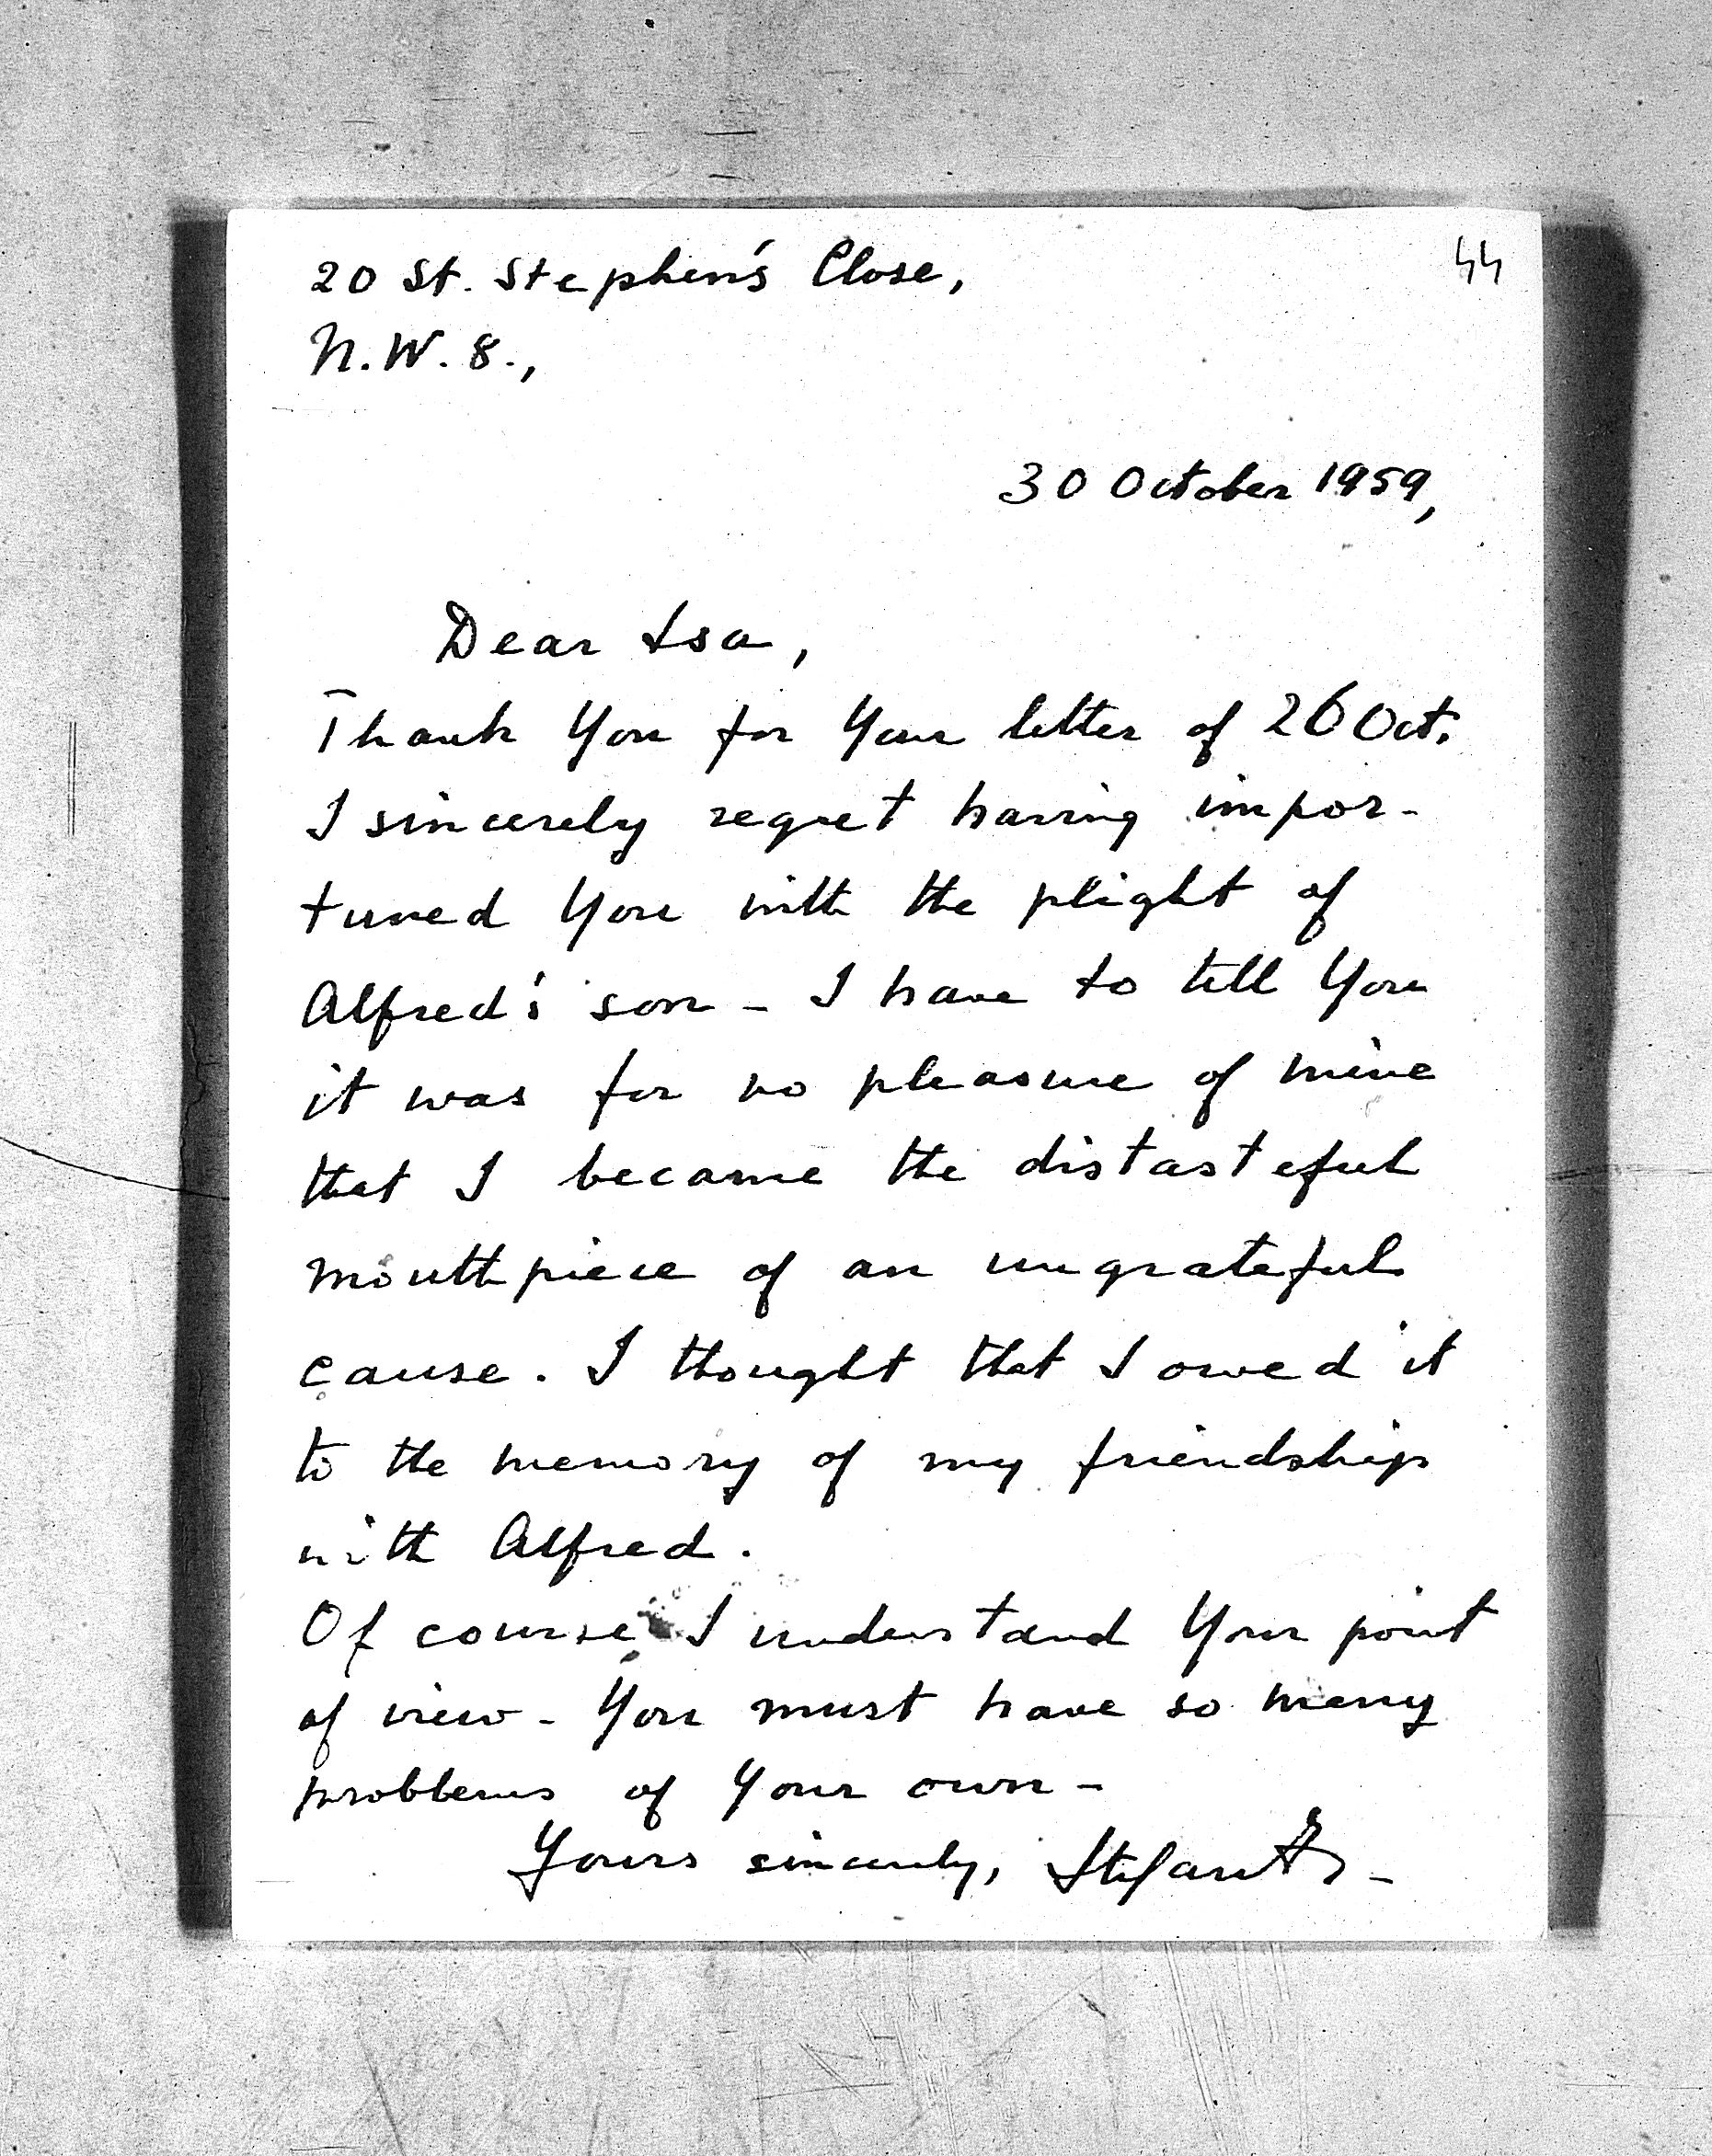 44
20 St. Stephen's Close,
N.W.8.,
30 October 1959,
Dear Isa,
Thank You for Your letter of 26 Oct.
I sincerely regret having impor-
tuned You with the plight of
Alfred's son - I have to tell You
it was for no pleasure of mine
that I became the distasteful
mouthpiece of an ungrateful
cause. I thought that I owed it
to the memory of my friendship
with Alfred.
Of course I understand Your point
of view - You must have so many
problems of Your own -
Yours sincerely, Stefan